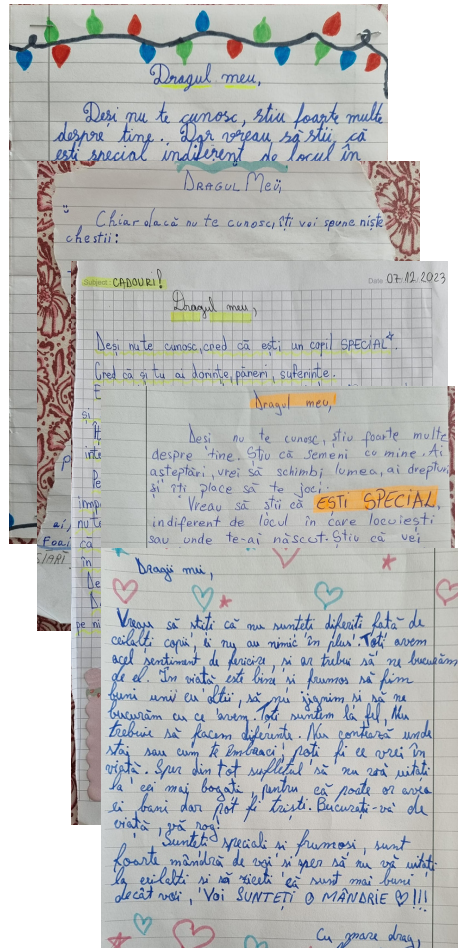 Dragul meu,
Deși nu te cunosc, știu foarte multe
despre tine. Dar vreau să știi că
ești special indiferent de locul în
DRAGUL MEU,
Chiar dacă nu te cunosc, îți voi spune niște
chestii:
Subject: CADOURI!
Date 07.12.2023
Dragul meu,
Deși nu te cunosc, cred că ești un copil SPECIAL*.
Cred că și tu ai dorințe, păreri, suferințe.
și
inte
Pe
imp
nu te
că
în
De
pe ni
Dragul meu,
Deși nu te cunosc, știu foarte multe
despre tine. Știu că semeni cu mine. Ai
așteptări, vrei să schimbi lumea, ai drepturi
și îți place să te joci.
Vreau să știi că EȘTI SPECIAL,
indiferent de locul în care locuiești
sau unde te-ai născut. Știu că vei
Dragii mei,
Vreau să știți că nu sunteți diferiți față de
ceilalți copii, ei nu au nimic în plus. Toți avem
acel sentiment de fericire, și ar trebui să ne bucurăm
de el. În viață est bine și frumos să fim
buni unii cu alții, să nu jignim și să ne
bucurăm cu ce avem. Toți suntem la fel, Nu
trebuie să facem diferențe. Nu contează unde
stai sau cum te îmbraci, poți fi ce vrei în
viață. Sper din tot sufletul să nu vă uitați
la cei mai bogați, pentru că poate or avea
ei bani dar pot fi triști. Bucurați-vă de
viață, vă rog.
Sunteți speciali și frumoși, sunt
foarte mândră de voi și sper să nu vă uitați
la ceilalți și să ziceți că sunt mai buni
decât voi, VOI SUNTEȚI O MÂNDRIE ♡!!!
Cu mare drag,